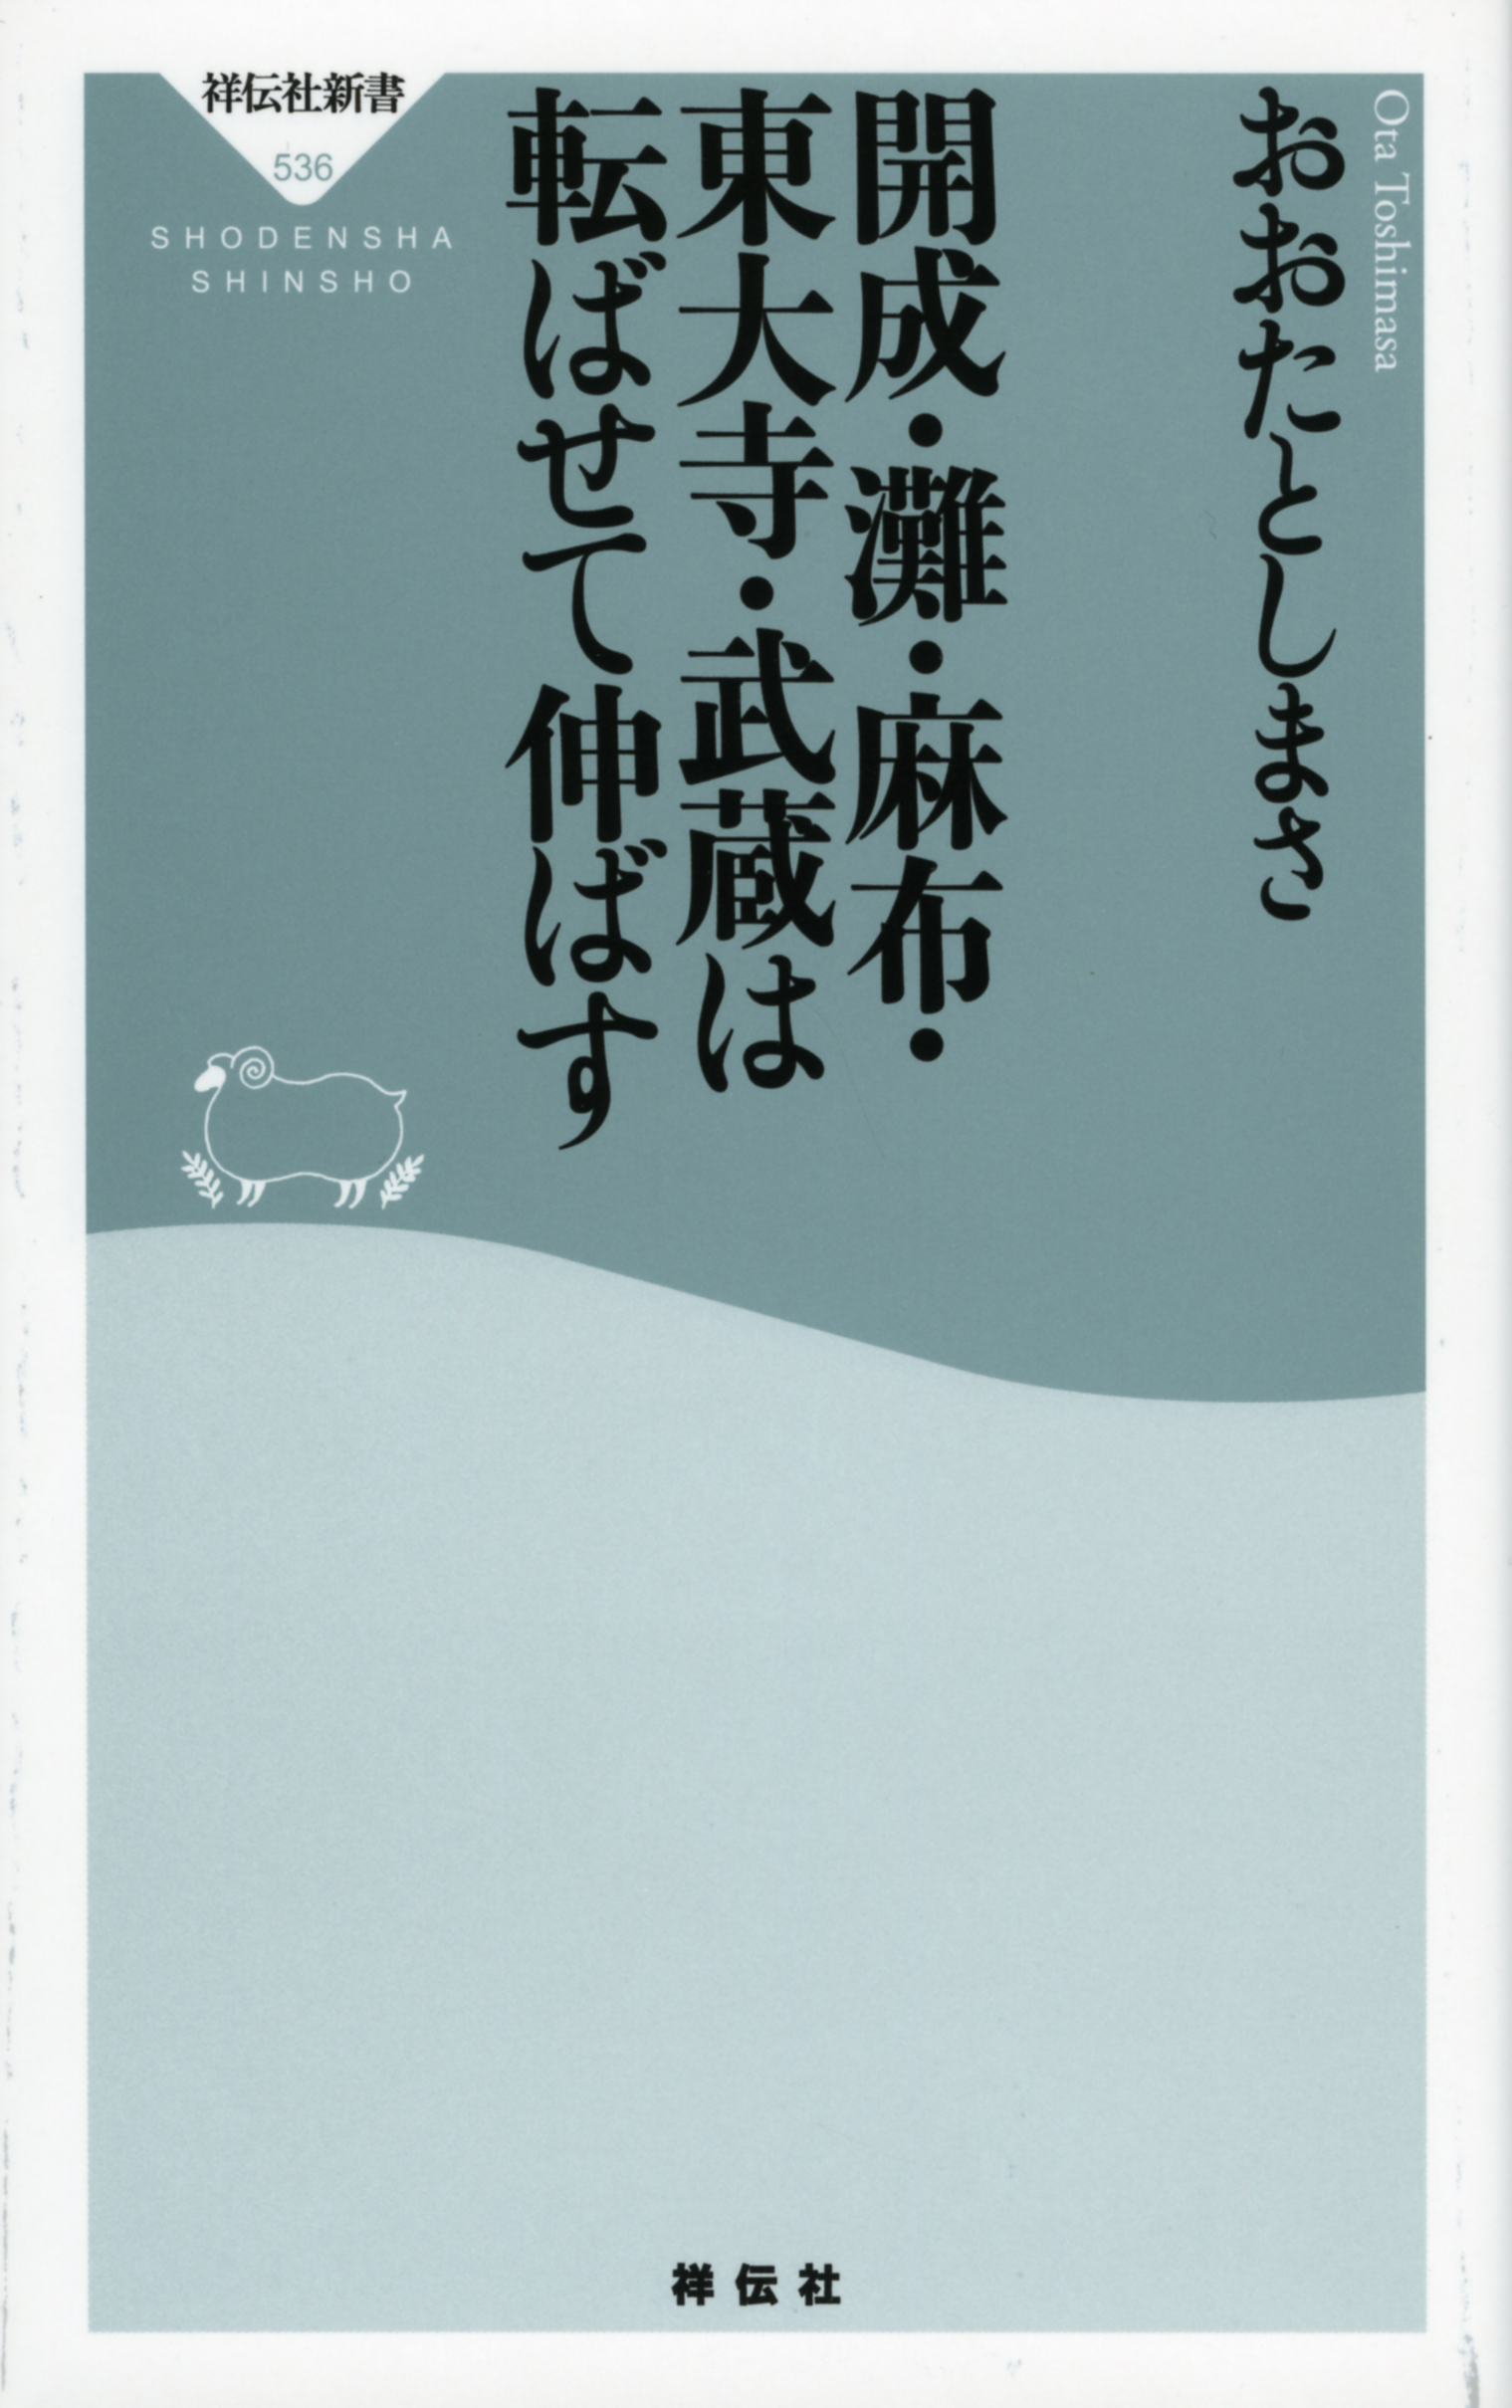 Ota Toshimasa
おおたとしまさ
開成・灘・麻布・
東大寺・武蔵は
転ばせて伸ばす
祥伝社新書
536
SHODENSHA
SHINSHO
祥伝社